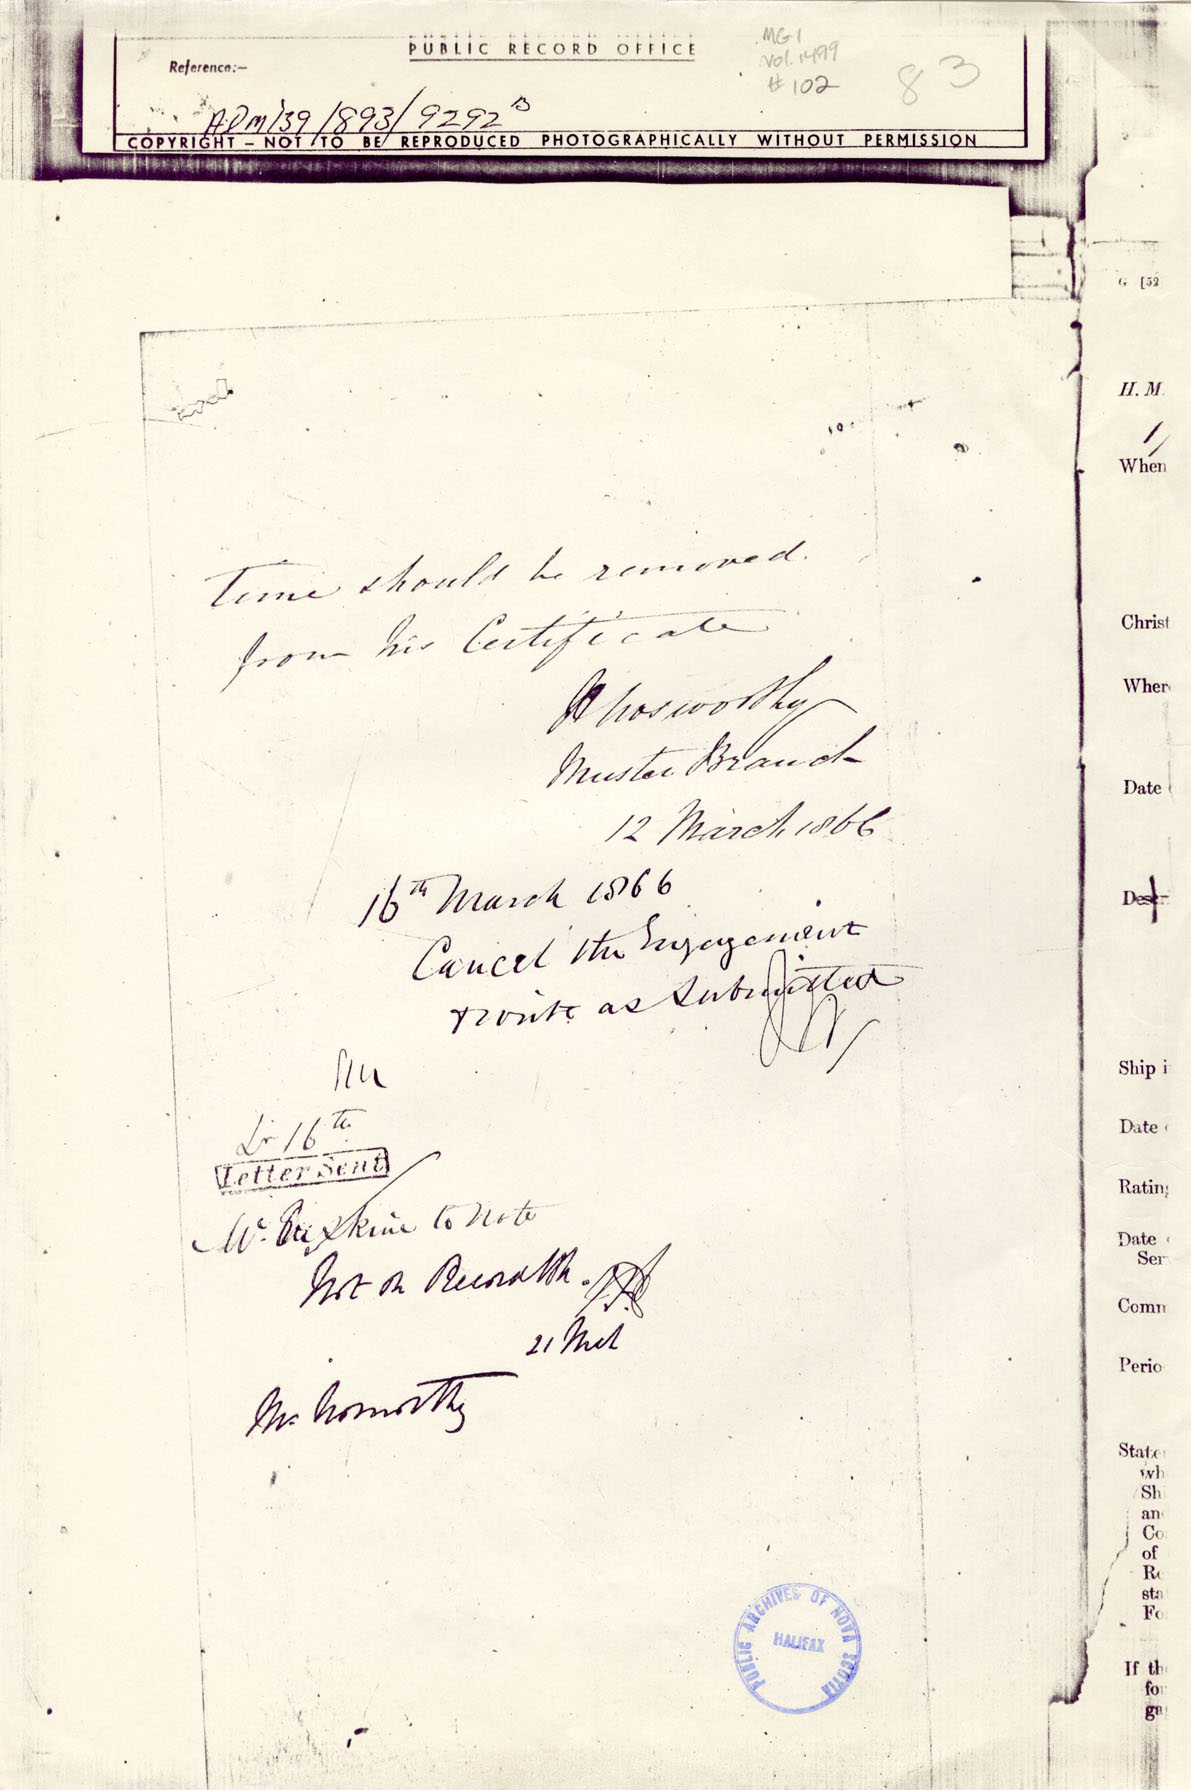 PUBLIC RECORD OFFICE
MG1
Vol. 1499
# 102
83
Reference:—
ADM 139/893/9292 B
COPYRIGHT — NOT TO BE REPRODUCED PHOTOGRAPHICALLY WITHOUT PERMISSION
Time should be removed
from his Certificate
Nosworthy
Muster Branch
12 March 1866
16th March 1866
Cancel the Engagement
& write as submitted
Lr 16th
Letter Sent
Mr. Erskine to Note
Not on Record
21 Mch
Mr Nosworthy
PUBLIC ARCHIVES OF NOVA SCOTIA
HALIFAX
G [52
H. M.
When
Christ
Wher
Date
Desc
Ship i
Date
Rating
Date
Ser
Comm
Perio
State
wh
Sh
an
Co
of
Re
sta
Fo
If th
for
ga